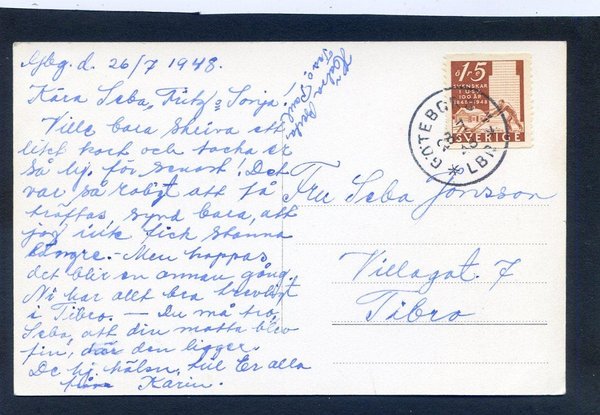 Gbg. d. 26/7 1948.
Kära Seba, Fritz o Sonja!
Ville bara skriva ett
litet kort och tacka er
så hj. för senast! Det
var så roligt att få
träffas, synd bara, att
jag inte fick stanna
längre. - Men hoppas
det blir en annan gång.
Ni har allt bra trevligt
i Tibro. - Du må tro,
Seba, att din matta blev
fin, där den ligger.
De hj. häls. till Er alla
från Karin.
Hälsa
Fru Seba Jonsson
Villagat. 7
Tibro
ö 15
SVENSKAR
I USA
100 ÅR
1848-1948
SVERIGE
GÖTEBORG